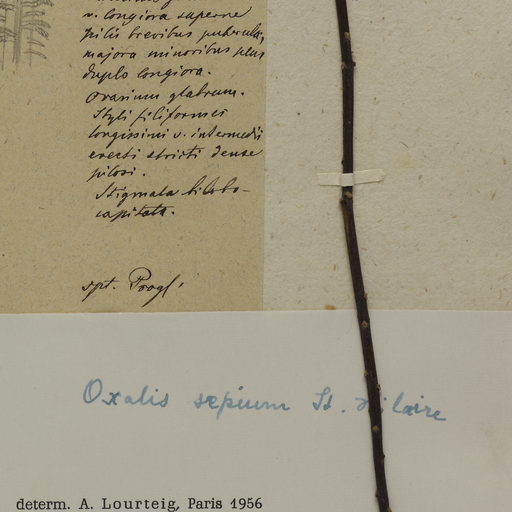 v. longiora superne
pilis brevibus puberula,
majora minoribus plus
duplo longiora.
Ovarium glabrum.
Styli filiformes
longissimi v. intermedii
erecti stricti dense
pilosi.
Stigmata bilobo-
capitata.
spt. Progl.
Oxalis sepium St. Hilaire
determ. A. Lourteig, Paris 1956